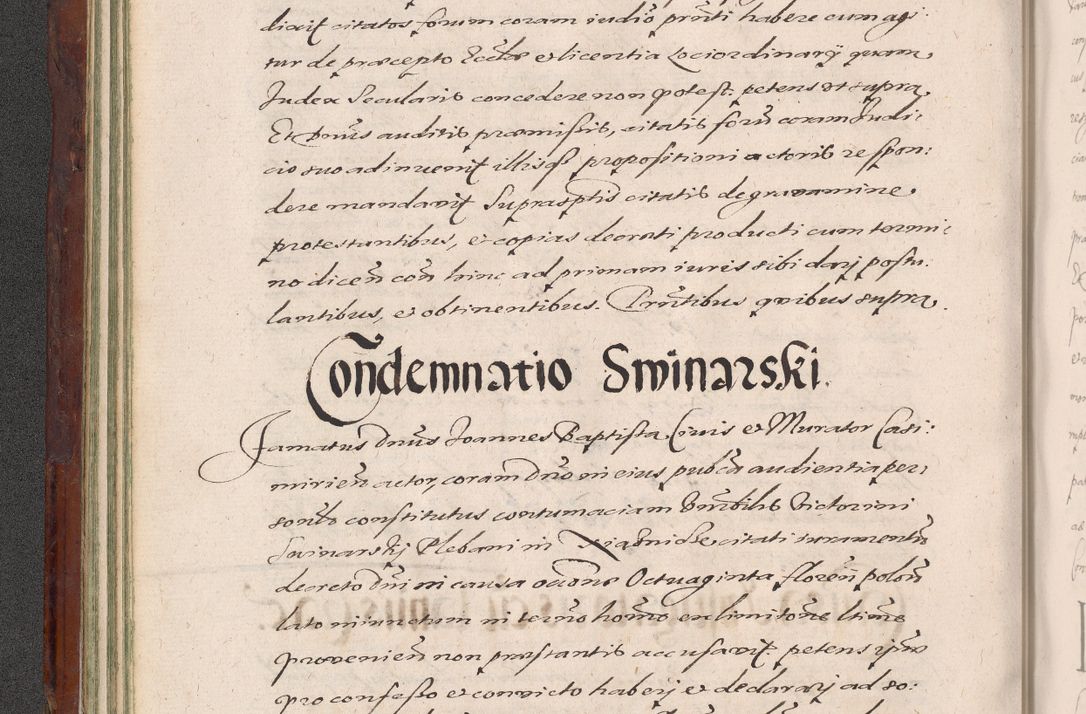 dixit citatos forum coram iudio prñti habere cum agi:
tur de præcepto Ecctæ et licentia Lociordinarÿ quam
Iudex Secularis concedere non potest. petens ut supra.
Et Dnus auditis præmissis, citatis forũ coram Iudi:
cio suo adinvenit illisq propositioni actoris respon:
dere mandavit Suprasptis citatis de gravamine
protestantibus, et copias decreti producti cum termi:
no dicen con hinc ad primam iuris sibi darj postu:
lantibus, et obtinentibus. Prñtibus quibus supra.
Condemnatio Swinarski.
Famatus Dnus Ioannes Baptista Civis et Murator Casi:
mirien actor, coram Dno in eius pubca audientia per:
sonłr constitutus contumaciam Vnrbilis Victorini
Swinarskij Plebani in citati iuramentũ
decreto Dni in causa Octuaginta floren polon
lato iniunctum in termo hoðno ex limitone
provenien non præstantis accusavit petens ipm
pro confesso et convicto haberj et declararj ad so: